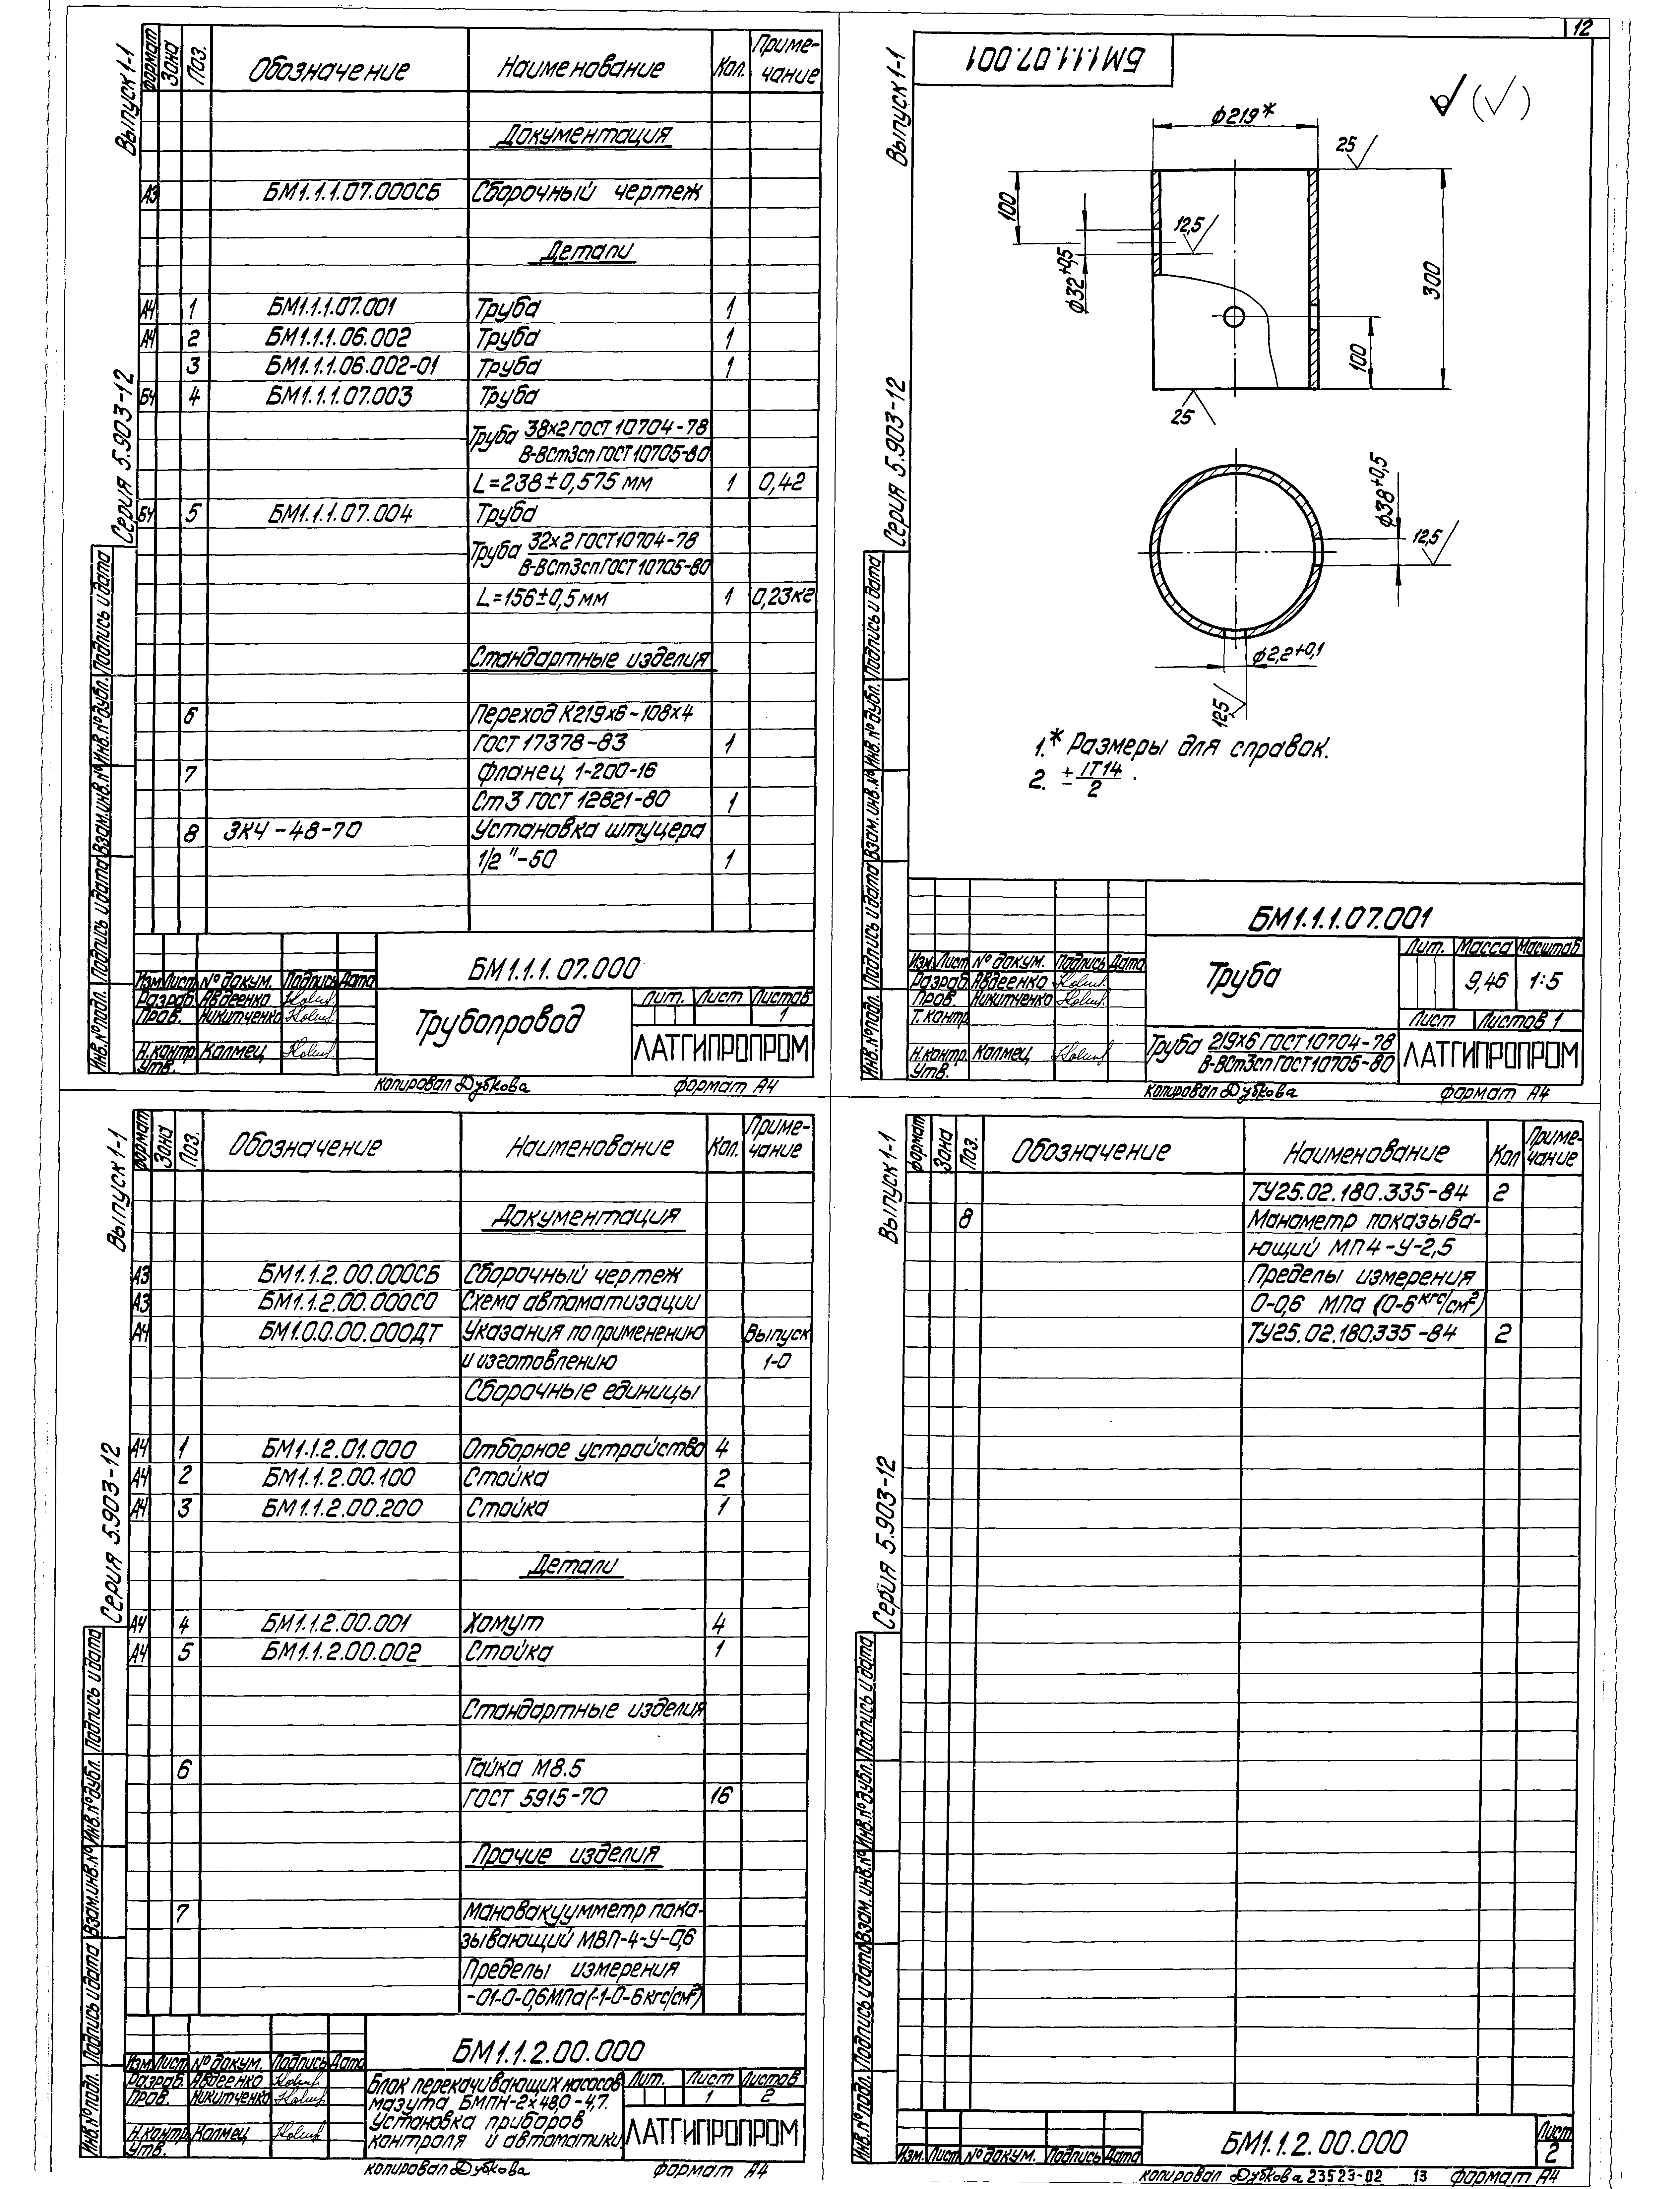 Выпуск 1-1
Серия 5.903-12
Формат Зона Поз. Обозначение Наименование Кол. Приме-
чание
Документация
А3 БМ1.1.1.07.000СБ Сборочный чертеж
Детали
А4 1 БМ1.1.1.07.001 Труба 1
А4 2 БМ1.1.1.06.002 Труба 1
3 БМ1.1.1.06.002-01 Труба 1
БЧ 4 БМ1.1.1.07.003 Труба
Труба 38х2 ГОСТ 10704-78
В-ВСт3сп ГОСТ 10705-80
L=238±0,575 мм 1 0,42
БЧ 5 БМ1.1.1.07.004 Труба
Труба 32х2 ГОСТ 10704-78
В-ВСт3сп ГОСТ 10705-80
L=156±0,5 мм 1 0,23кг
Стандартные изделия
6 Переход К219х6-108х4
ГОСТ 17378-83 1
7 Фланец 1-200-16
Ст3 ГОСТ 12821-80 1
8 ЗКЧ-48-70 Установка штуцера
1/2"-50 1
Инв.№ подл. Подпись и дата Взам.инв.№ Инв.№ дубл. Подпись и дата
БМ1.1.1.07.000
Изм Лист № докум. Подпись Дата
Разраб. Авдеенко
Пров. Никитченко
Н.контр Калмец
Утв.
Трубопровод
Лит. Лист Листов
1
ЛАТГИПРОПРОМ
копировал Дубкова формат А4
12
Выпуск 1-1
Серия 5.903-12
БМ1.1.1.07.001
ф219*
25
100
12,5
ф32+0,5
300
100
25
ф38+0,5
12,5
ф2,2+0,1
12,5
1.* Размеры для справок.
2. ± IT14
2 .
Инв.№ подл. Подпись и дата Взам.инв.№ Инв.№ дубл. Подпись и дата
БМ1.1.1.07.001
Изм Лист № докум. Подпись Дата
Разраб. Авдеенко
Пров. Никитченко
Т.контр
Н.контр. Калмец
Утв.
Труба
Лит. Масса Масштаб
9,46 1:5
Лист Листов 1
Труба 219х6 ГОСТ 10704-78
В-ВСт3сп ГОСТ 10705-80
ЛАТГИПРОПРОМ
копировал Дубкова формат А4
Выпуск 1-1
Серия 5.903-12
Формат Зона Поз. Обозначение Наименование Кол. Приме-
чание
Документация
А3 БМ1.1.2.00.000СБ Сборочный чертеж
А3 БМ1.1.2.00.000СО Схема автоматизации
А4 БМ1.0.0.00.000ДТ Указания по применению Выпуск
и изготовлению 1-0
Сборочные единицы
А4 1 БМ1.1.2.01.000 Отборное устройство 4
А4 2 БМ1.1.2.00.100 Стойка 2
А4 3 БМ1.1.2.00.200 Стойка 1
Детали
А4 4 БМ1.1.2.00.001 Хомут 4
А4 5 БМ1.1.2.00.002 Стойка 1
Стандартные изделия
6 Гайка М8.5
ГОСТ 5915-70 16
Прочие изделия
7 Мановакуумметр пока-
зывающий МВП-4-У-0,6
Пределы измерения
-01-0-0,6МПа(-1-0-6кгс/см²)
Инв.№ подл. Подпись и дата Взам.инв.№ Инв.№ дубл. Подпись и дата
БМ1.1.2.00.000
Изм Лист № докум. Подпись Дата
Разраб. Авдеенко
Пров. Никитченко
Н.контр. Калмец
Утв.
Блок перекачивающих насосов
мазута БМПН-2х48,0-4,7.
Установка приборов
контроля и автоматики
Лит. Лист Листов
1 2
ЛАТГИПРОПРОМ
копировал Дубкова формат А4
Выпуск 1-1
Серия 5.903-12
Формат Зона Поз. Обозначение Наименование Кол Приме-
чание
ТУ25.02.180.335-84 2
8 Манометр показыва-
ющий МП4-У-2,5
Пределы измерения
0-0,6 МПа (0-6кгс/см²)
ТУ25.02.180.335-84 2
Инв.№ подл. Подпись и дата Взам.инв.№ Инв.№ дубл. Подпись и дата
Изм. Лист № докум. Подпись Дата
БМ1.1.2.00.000
Лист
2
копировал Дубкова 23523-02 13 формат А4